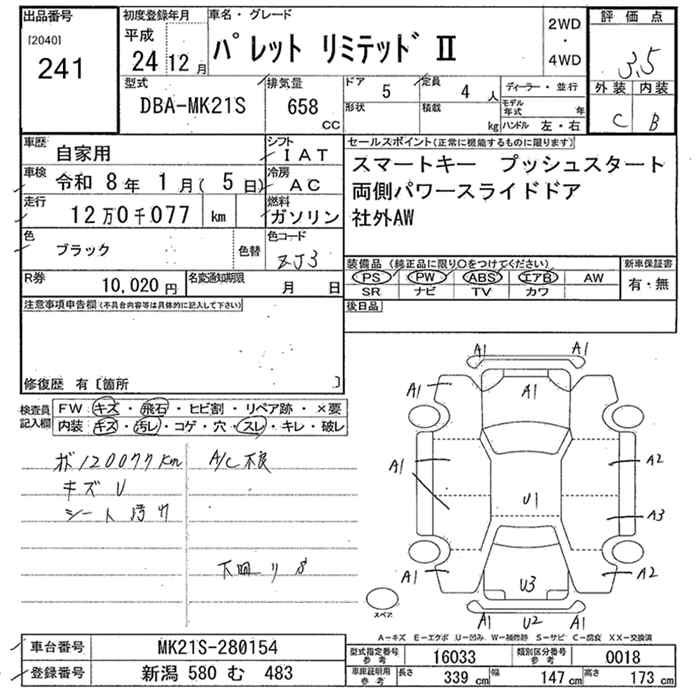 出品番号
[2040]
241
初度登録年月
平成
24 12月
車名・グレード
パレット リミテッド Ⅱ
2WD
・
4WD
評価点
3.5
外装 内装
C B
型式
DBA-MK21S
排気量
658
CC
ドア
5
定員
4人
形状
積載
kg
ディーラー・並行
モデル年式 年
ハンドル 左・右
車歴
自家用
シフト
IAT
車検
令和 8年 1月( 5日)
冷房
AC
走行
12万0千077 km
燃料
ガソリン
色
ブラック
色替
色コード
ZJ3
R券
10,020円
名変通知期限
月 日
セールスポイント(正常に機能するものに限ります)
スマートキー プッシュスタート
両側パワースライドドア
社外AW
装備品(純正品に限り○をつけてください)
PS PW ABS エアB AW
SR ナビ TV カワ
新車保証書
有・無
後日品
注意事項申告欄(不具合内容等は具体的に記入して下さい)
修復歴 有〔箇所 〕
検査員
記入欄
FW・キズ・飛石・ヒビ割・リペア跡・×要
内装・キズ・汚レ・コゲ・穴・スレ・キレ・破レ
120077km
A/C不良
キズ U
シート
下回り S
A1 A1
A1 A1 A1
A1 A2
U1
A3
A1 A2
U3
A1 U2 A1
スペア
A-キズ E-エクボ U-凹み W-補修跡 S-サビ C-腐食 XX-交換済
車台番号
MK21S-280154
登録番号
新潟 580 む 483
型式指定番号
参考
16033
類別区分番号
参考
0018
車庫証明用
参考
長さ 339 cm
幅 147 cm
高さ 173 cm